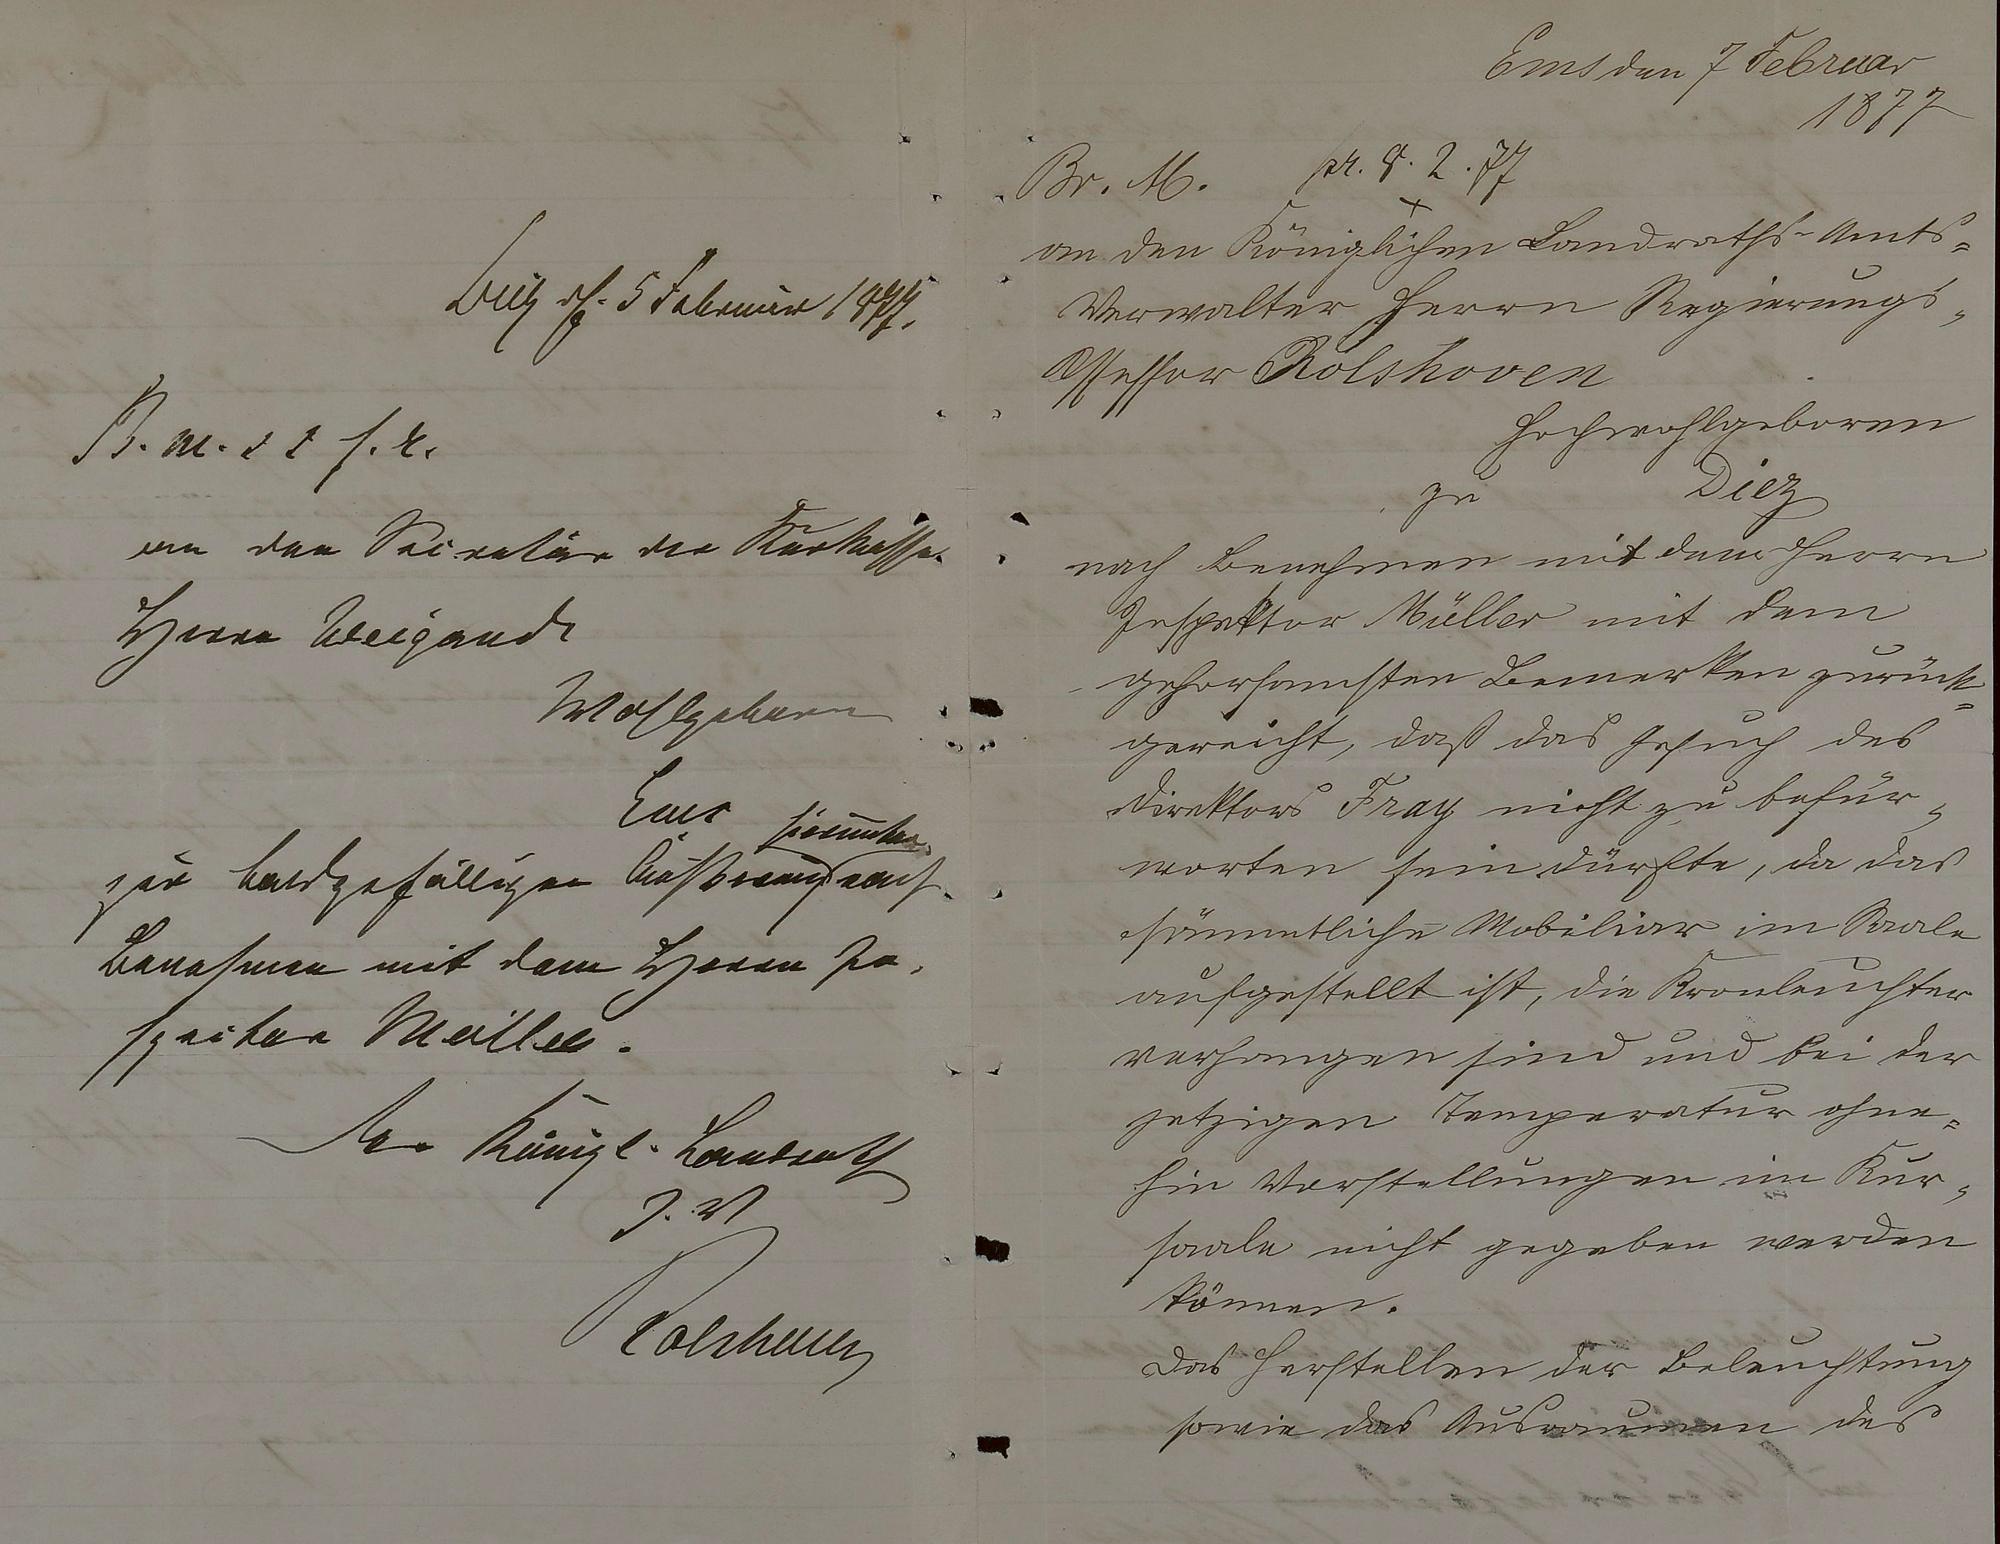 Diez d. 5 Februar 1877.
B. m. s. f. r.
an den Secretär der Kurkasse
Herrn Weigand
Wohlgeboren
Ems
zur baldgefälligen Äußerung hierunter nach
Benehmen mit dem Herrn In-
spector Müller.
Der Königl. Landrath
J. V
Rolshoven
Ems den 7 Februar
1877
Br. M. pr. 8. 2. 77
an den Königlichen Landraths-Amts-
Verwalter Herrn Regierungs-
Assessor Rolshoven
Hochwohlgeboren
zu Diez
nach Benehmen mit dem Herrn
Inspektor Müller mit dem
gehorsamsten Bemerken zurück-
gereicht, daß das Gesuch des
Direktors Fray nicht zu befür-
worten sein dürfte, da das
sämmtliche Mobiliar im Saale
aufgestellt ist, die Kronleuchter
verhangen sind und bei der
jetzigen Temperatur ohne-
hin Vorstellungen im Kur-
saale nicht gegeben werden
können.
Das Herstellen der Beleuchtung
sowie das Ausräumen des